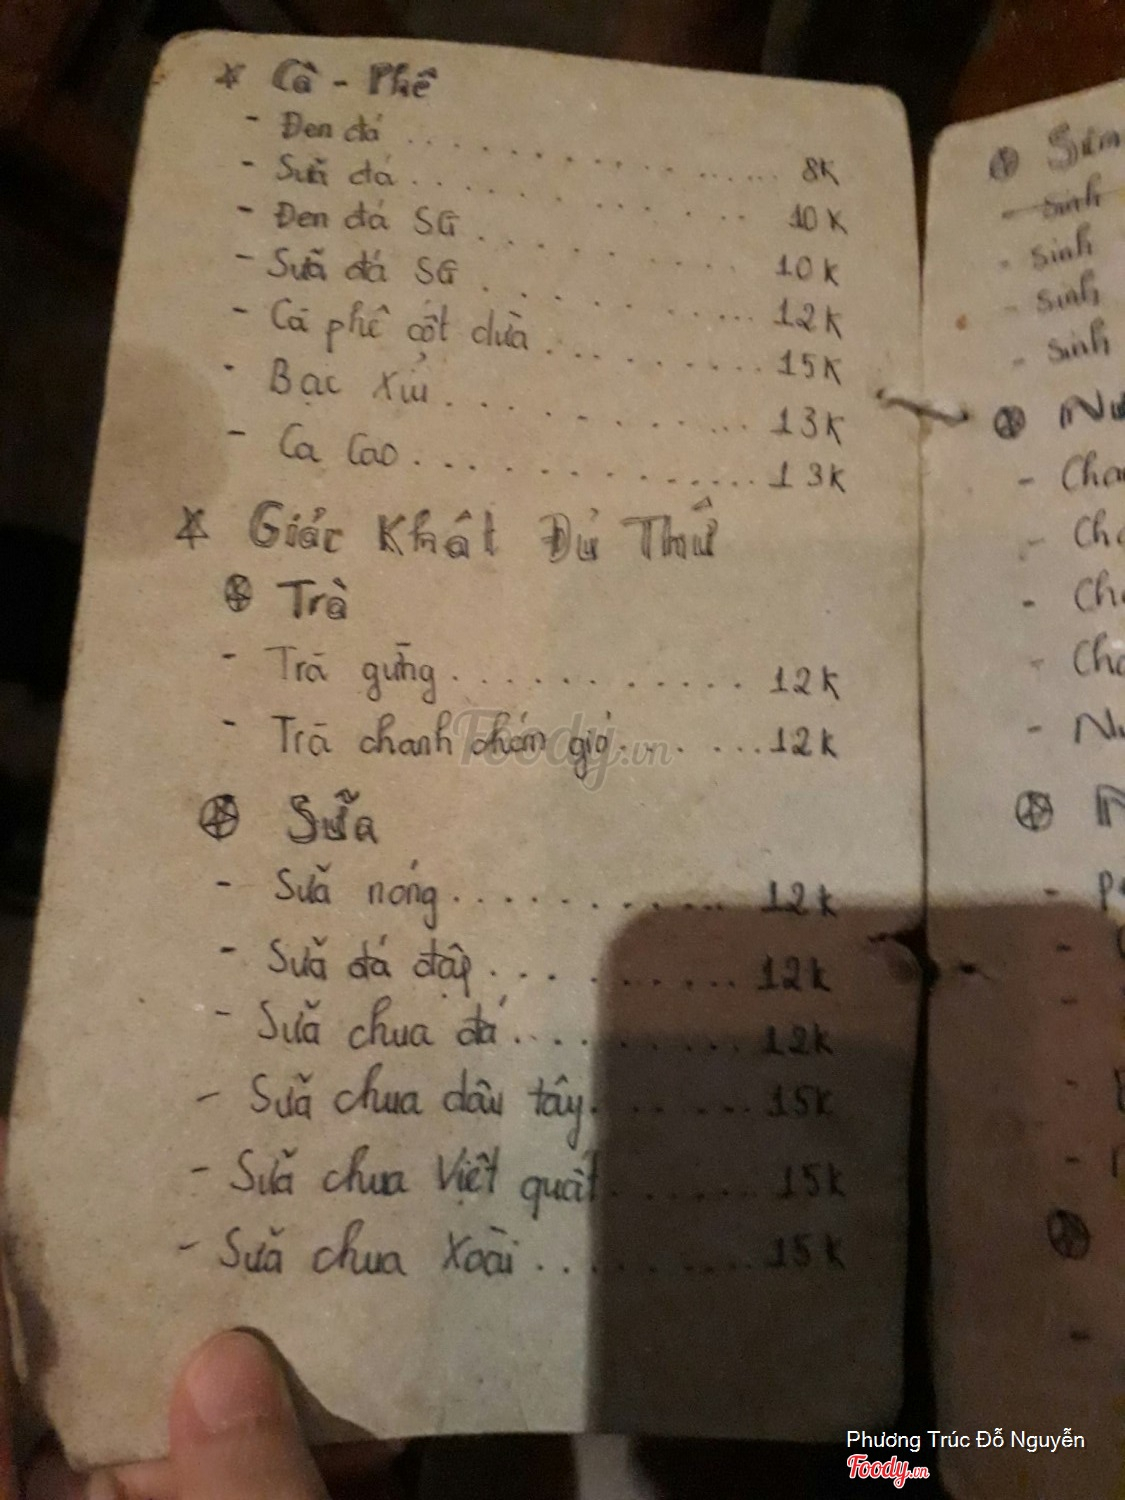 Cà - Phê
- Đen đá ... 8K
- Sữa đá ... 10K
- Đen đá SG ... 10K
- Sữa đá SG ... 12K
- Cà phê cốt dừa ... 15K
- Bạc xỉu ... 13K
- Ca Cao ... 13K
Giải Khát Đủ Thứ
Trà
- Trà gừng ... 12K
- Trà chanh chém gió ... 12K
Sữa
- Sữa nóng ... 12K
- Sữa đá đập ... 12K
- Sữa chua đá ... 12K
- Sữa chua dâu tây ... 15K
- Sữa chua Việt quất ... 15K
- Sữa chua Xoài ... 15K
Sinh
Sinh
Sinh
Sinh
Foody.vn
Phương Trúc Đỗ Nguyễn
Foody.vn